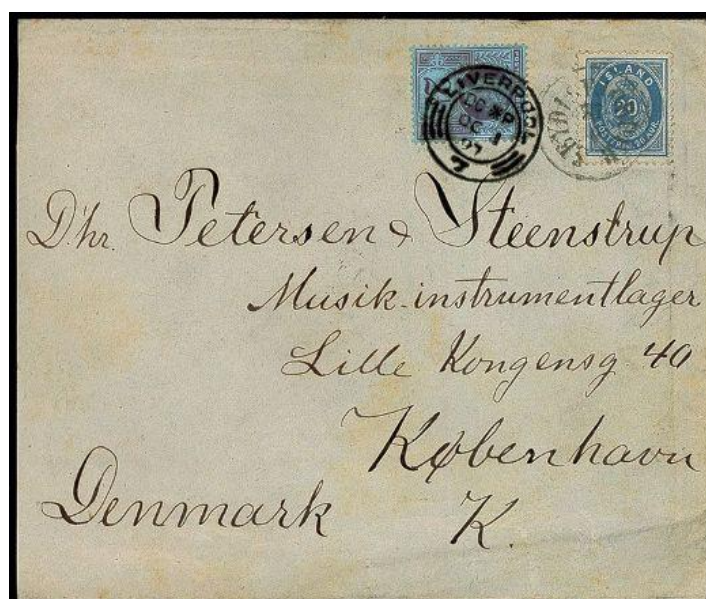 LIVERPOOL
ISLAND
20
D'hr. Petersen & Steenstrup
Musik-instrumentlager
Lille Kongensg 40
København
Denmark K.